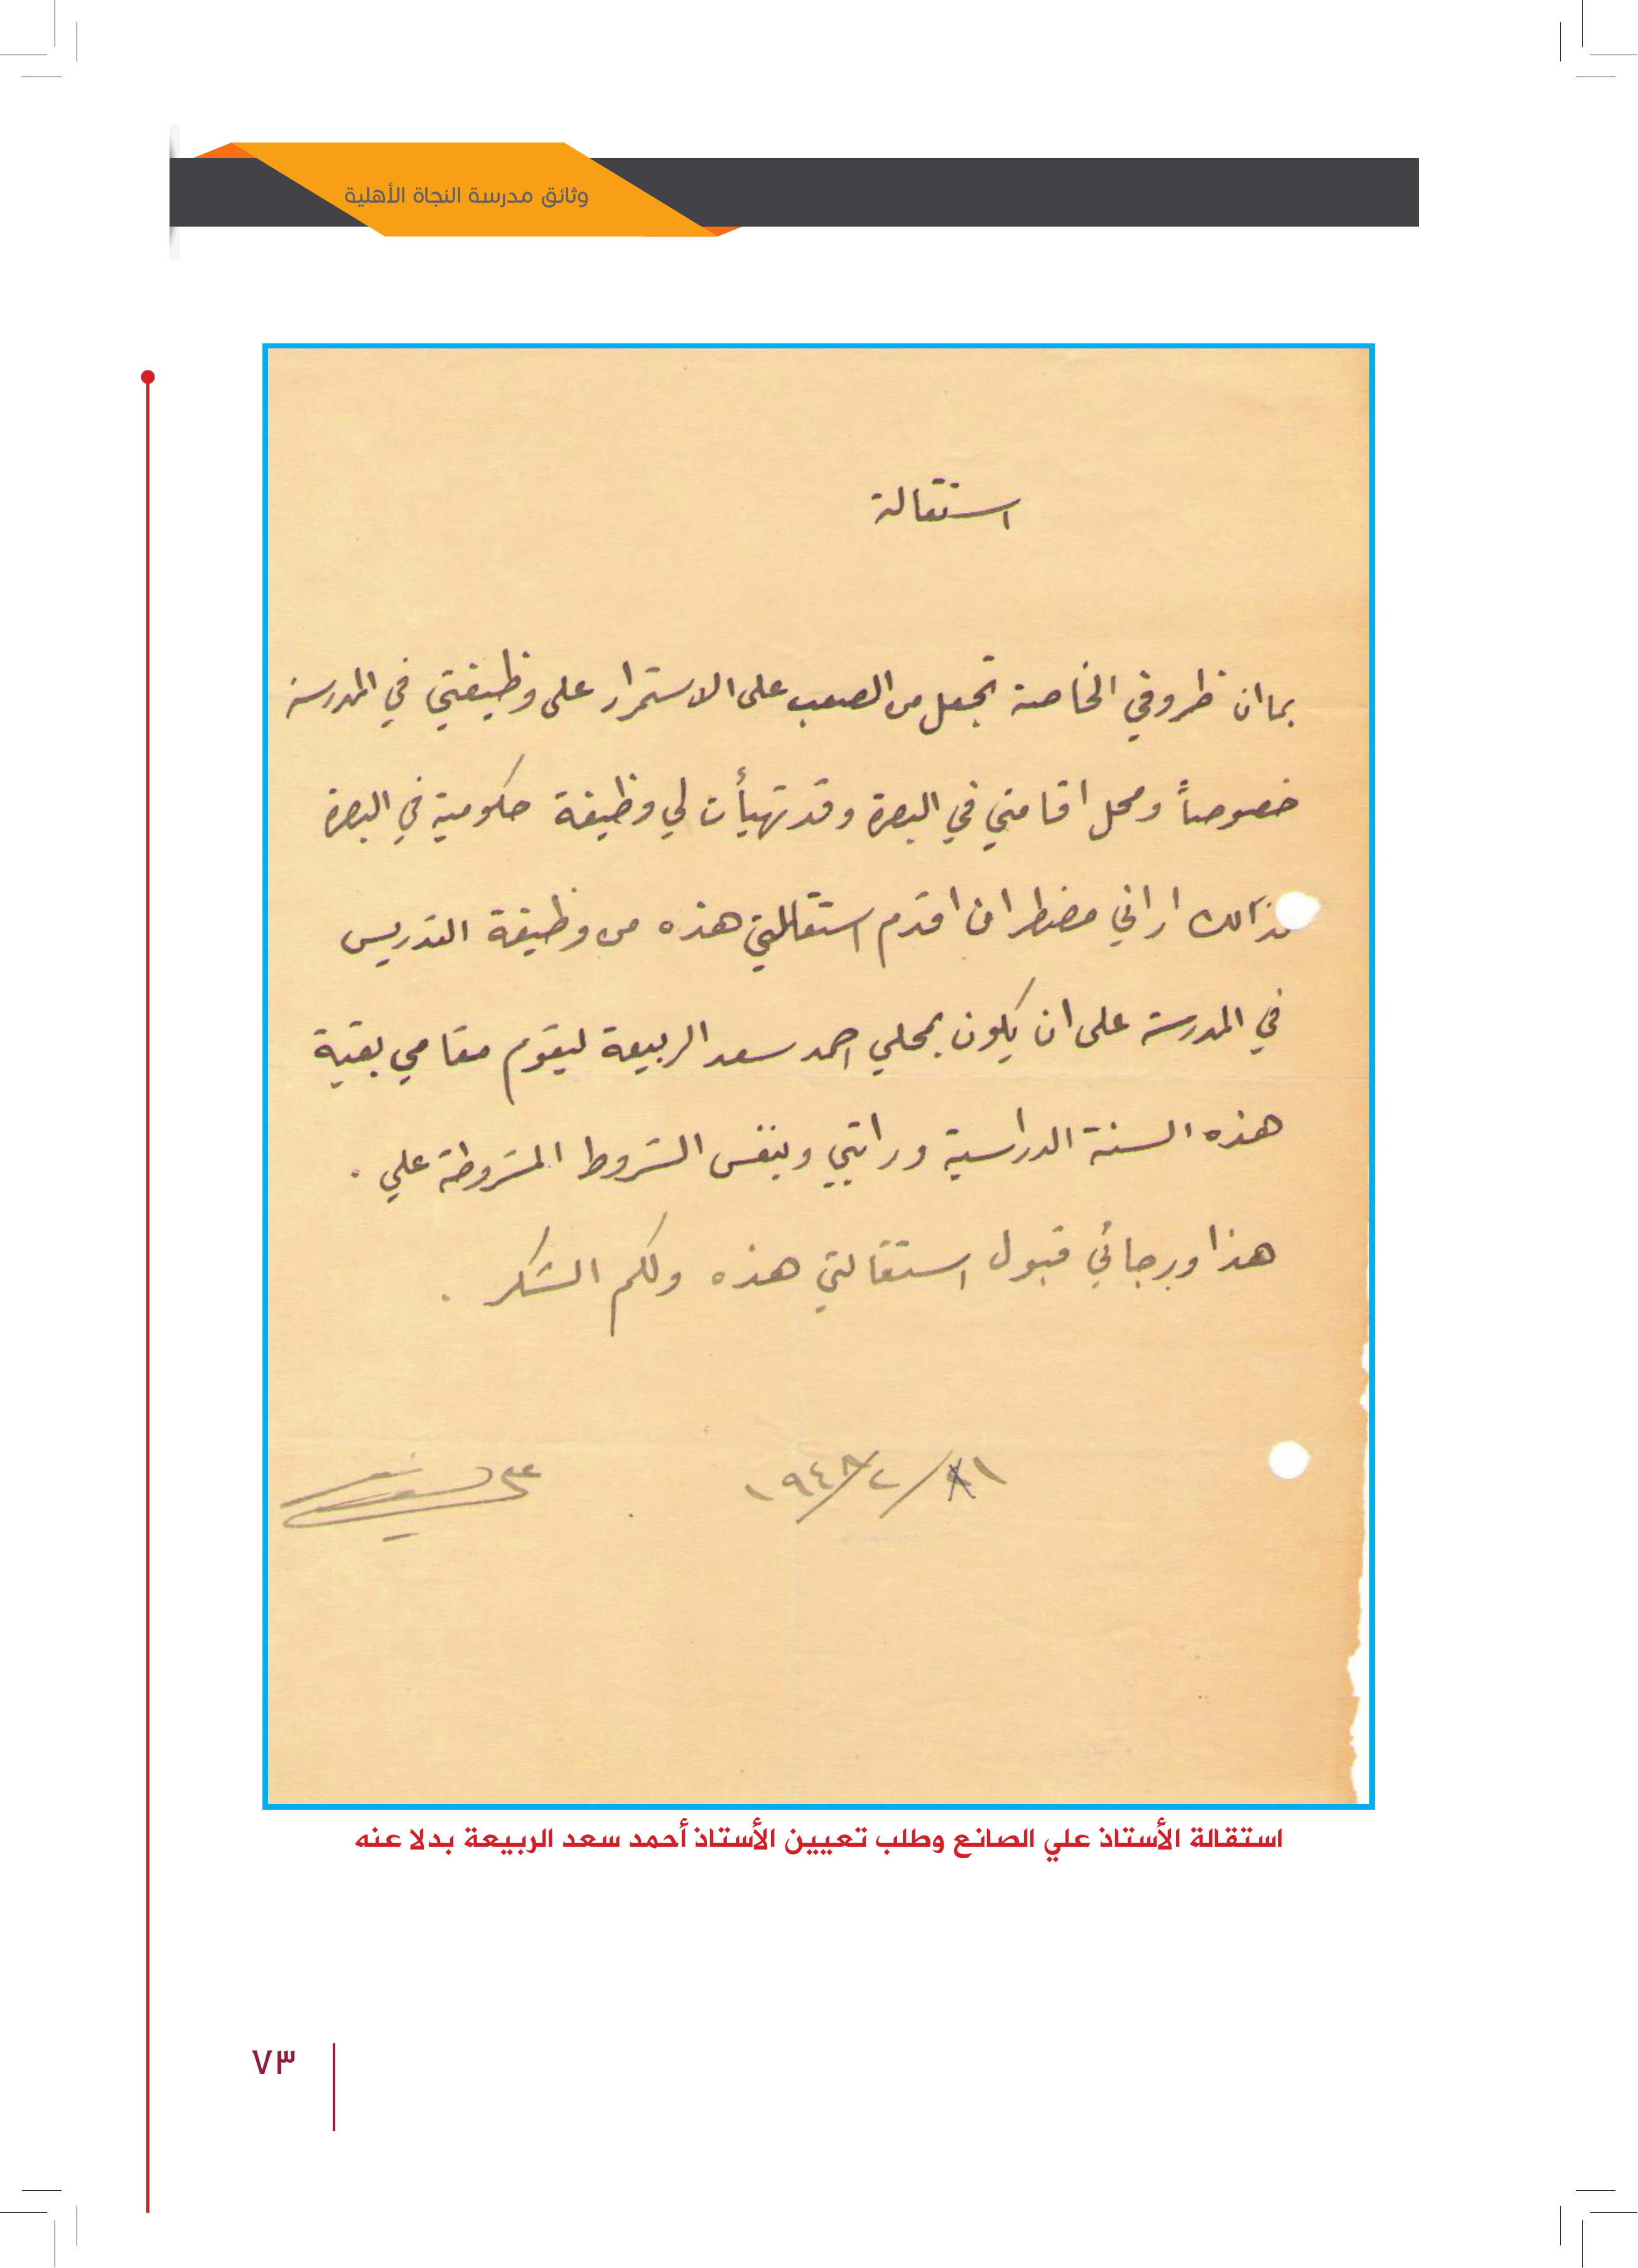 وثائق مدرسة النجاة الأهلية
استقالة
بما ان ظروفي الخاصة تجعل من الصعب على الاستمرار على وظيفتي في المدرسة
خصوصاً ومحل اقامتي في البصرة وقد تهيأت لي وظيفة حكومية في البصرة
اراني مضطر ان اقدم استقالتي هذه من وظيفة التدريس
في المدرسة على ان يكون بمحلي احمد سعد الربيعة ليقوم مقامي بقية
هذه السنة الدراسية وراتبي وبنفس الشروط المشروطة علي .
هذا ورجائي قبول استقالتي هذه ولكم الشكر .
استقالة الأستاذ علي الصانع وطلب تعيين الأستاذ أحمد سعد الربيعة بدلا عنه
٧٣